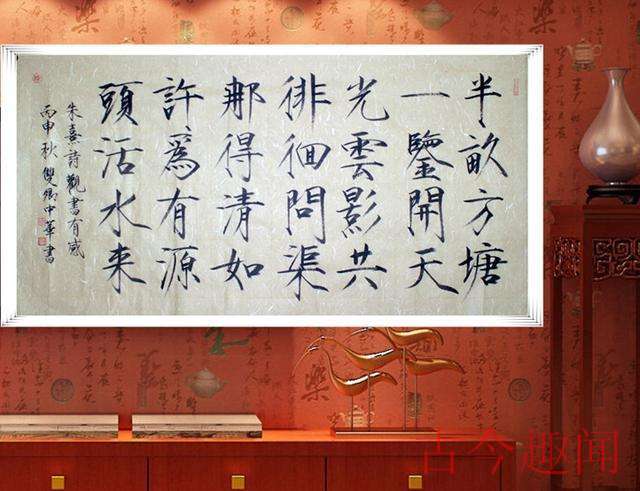 半畝方塘
一鑒開天
光雲影共
徘徊問渠
那得清如
許爲有源
頭活水来
朱熹詩觀書有感
丙申秋雙鄉中華書
古今趣闻